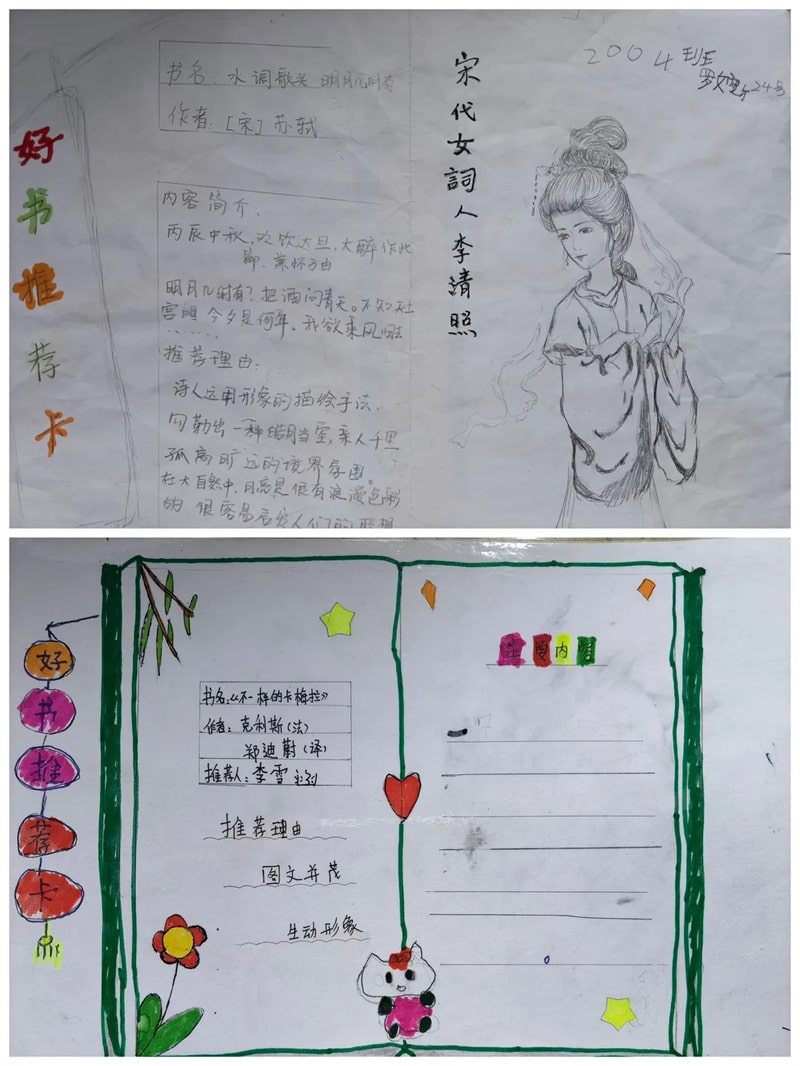 好书推荐卡
书名：水调歌头 明月几时有
作者：[宋]苏轼
内容简介、
丙辰中秋，欢饮达旦，大醉作此
篇、兼怀子由
明月几时有？把酒问青天。不知天上
宫阙 今夕是何年。我欲乘风归去
......
推荐理由：
诗人运用形象的描绘手法、
勾勒出一种皓月当空，亲人千里
孤高旷远的境界氛围。
在大自然中，月亮是很有浪漫色彩
的 很容易启发人们的联想
宋代女詞人李清照
2004班
24号
好书推荐卡
书名：《不一样的卡梅拉》
作者：克利斯（法）
郑迪蔚（译）
推荐人：李雪
推荐理由
图文并茂
生动形象
内